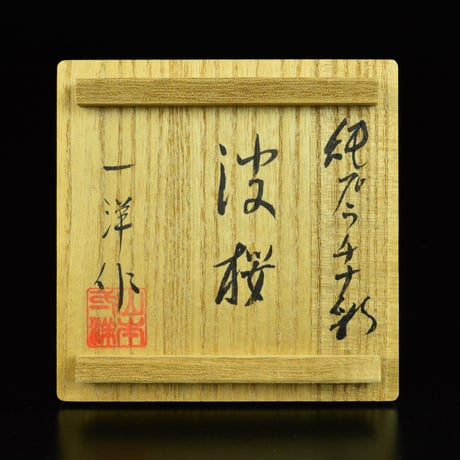 純プラチナ彩
波桜
一洋作
山本